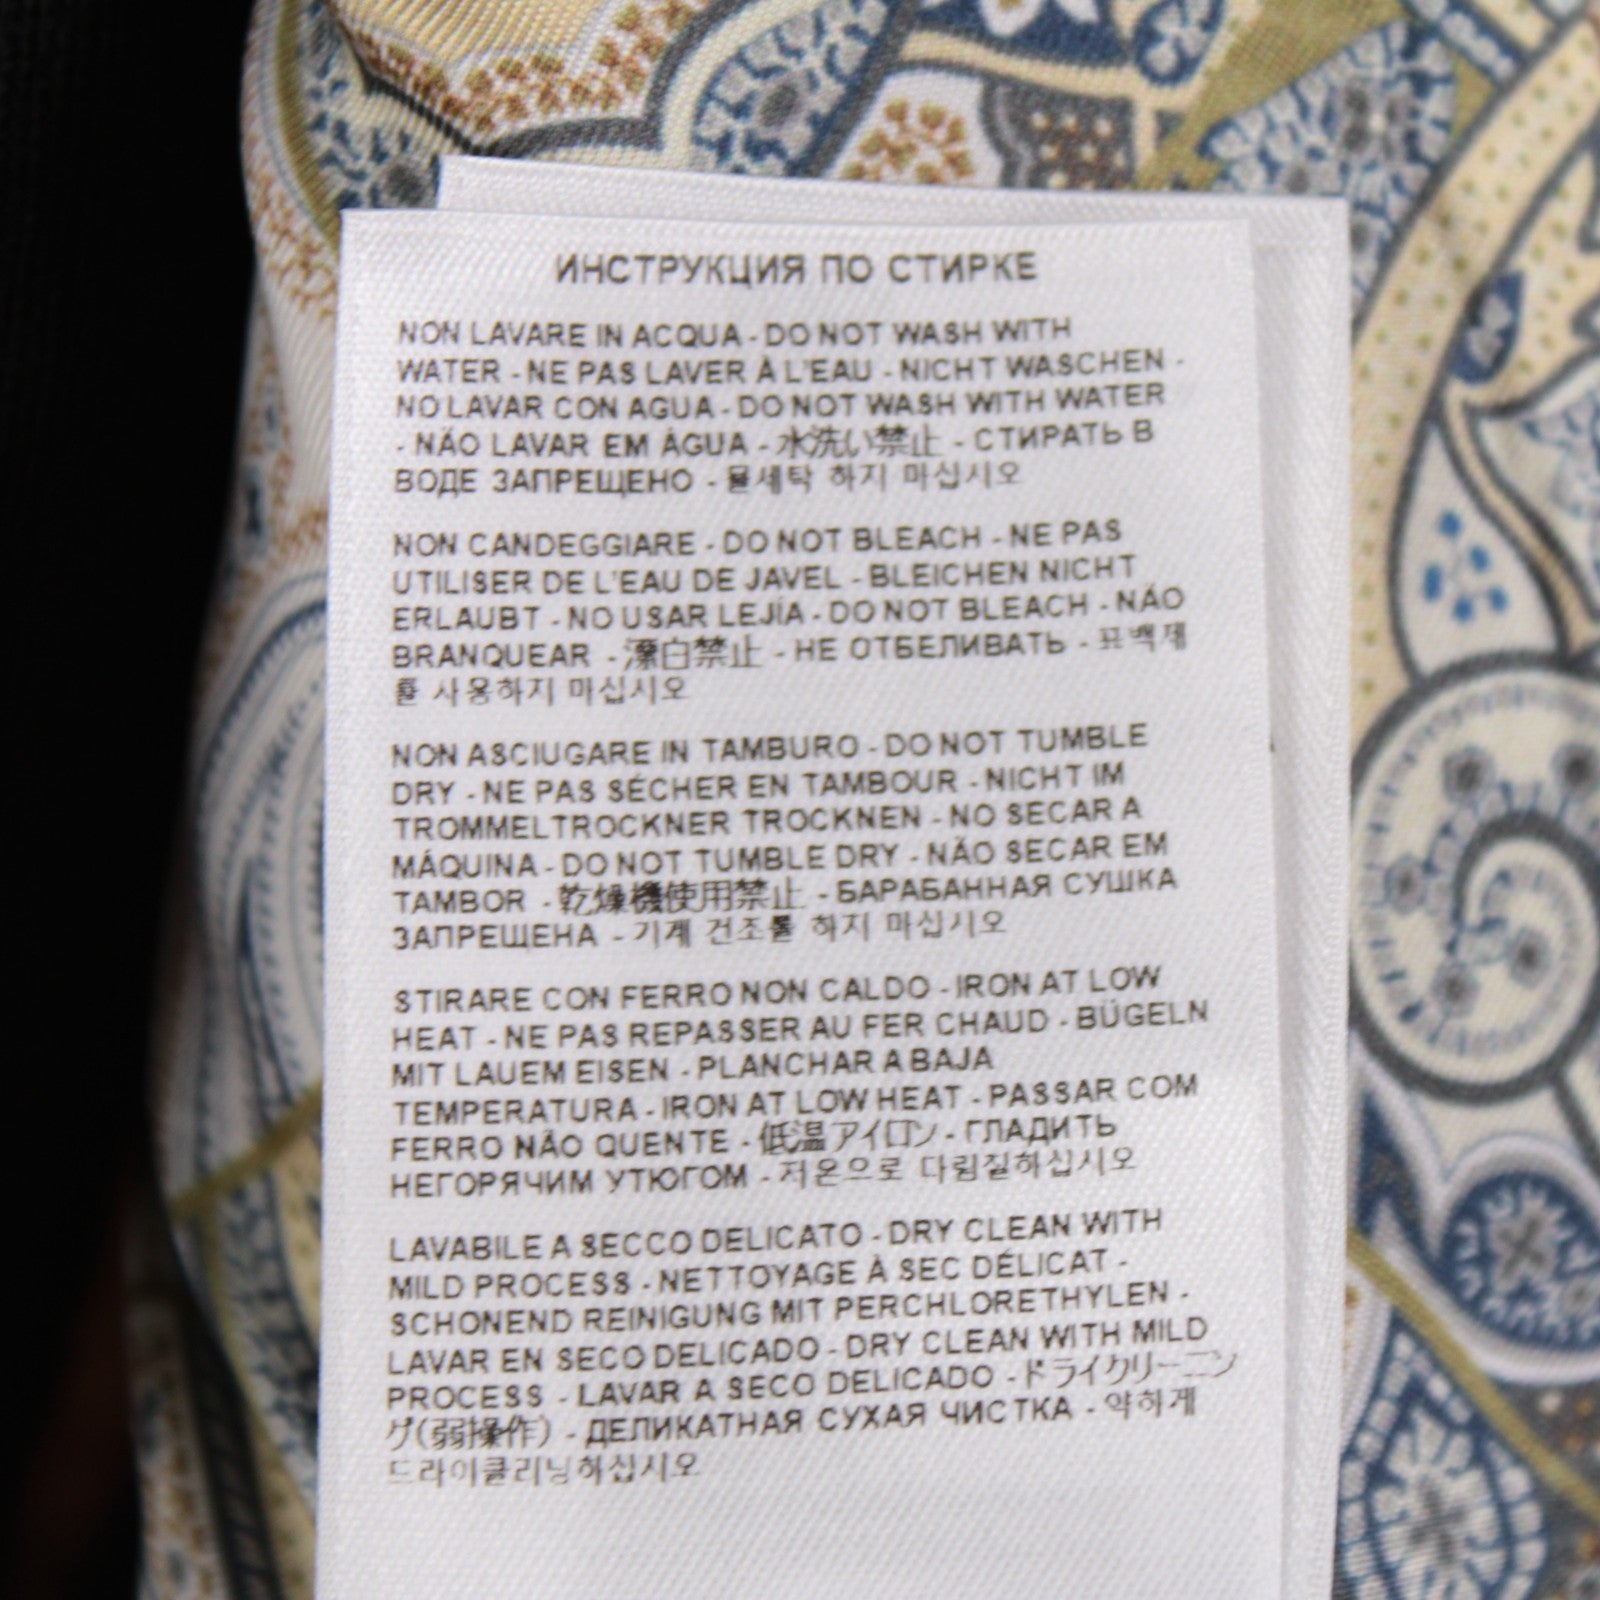 ИНСТРУКЦИЯ ПО СТИРКЕ
NON LAVARE IN ACQUA - DO NOT WASH WITH
WATER - NE PAS LAVER À L'EAU - NICHT WASCHEN -
NO LAVAR CON AGUA - DO NOT WASH WITH WATER
- NÃO LAVAR EM ÁGUA - 水洗い禁止 - СТИРАТЬ В
ВОДЕ ЗАПРЕЩЕНО - 물세탁 하지 마십시오
NON CANDEGGIARE - DO NOT BLEACH - NE PAS
UTILISER DE L'EAU DE JAVEL - BLEICHEN NICHT
ERLAUBT - NO USAR LEJÍA - DO NOT BLEACH - NÃO
BRANQUEAR - 漂白禁止 - НЕ ОТБЕЛИВАТЬ - 표백제
를 사용하지 마십시오
NON ASCIUGARE IN TAMBURO - DO NOT TUMBLE
DRY - NE PAS SÉCHER EN TAMBOUR - NICHT IM
TROMMELTROCKNER TROCKNEN - NO SECAR A
MÁQUINA - DO NOT TUMBLE DRY - NÃO SECAR EM
TAMBOR - 乾燥機使用禁止 - БАРАБАННАЯ СУШКА
ЗАПРЕЩЕНА - 기계 건조를 하지 마십시오
STIRARE CON FERRO NON CALDO - IRON AT LOW
HEAT - NE PAS REPASSER AU FER CHAUD - BÜGELN
MIT LAUEM EISEN - PLANCHAR A BAJA
TEMPERATURA - IRON AT LOW HEAT - PASSAR COM
FERRO NÃO QUENTE - 低温アイロン - ГЛАДИТЬ
НЕГОРЯЧИМ УТЮГОМ - 저온으로 다림질하십시오
LAVABILE A SECCO DELICATO - DRY CLEAN WITH
MILD PROCESS - NETTOYAGE À SEC DÉLICAT -
SCHONEND REINIGUNG MIT PERCHLORETHYLEN -
LAVAR EN SECO DELICADO - DRY CLEAN WITH MILD
PROCESS - LAVAR A SECO DELICADO - ドライクリーニン
グ(弱操作) - ДЕЛИКАТНАЯ СУХАЯ ЧИСТКА - 약하게
드라이클리닝하십시오